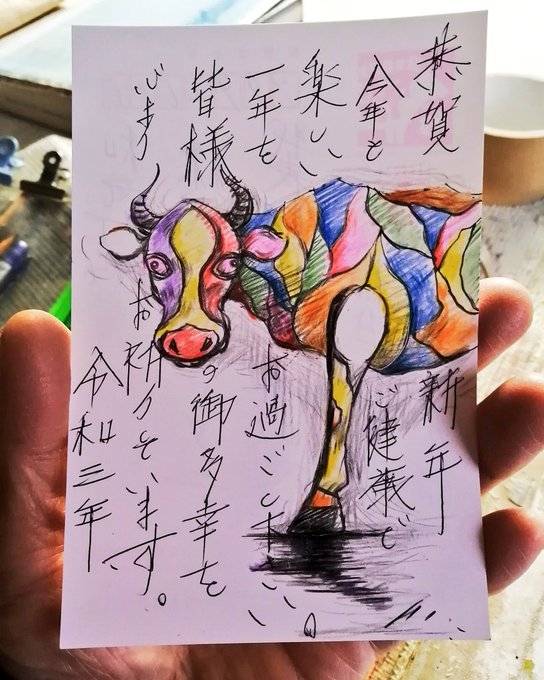 恭賀新年
今年もご健康で
楽しい
一年をお過ごし下さい。
皆様の御多幸を
心よりお祈りしています。
令和三年